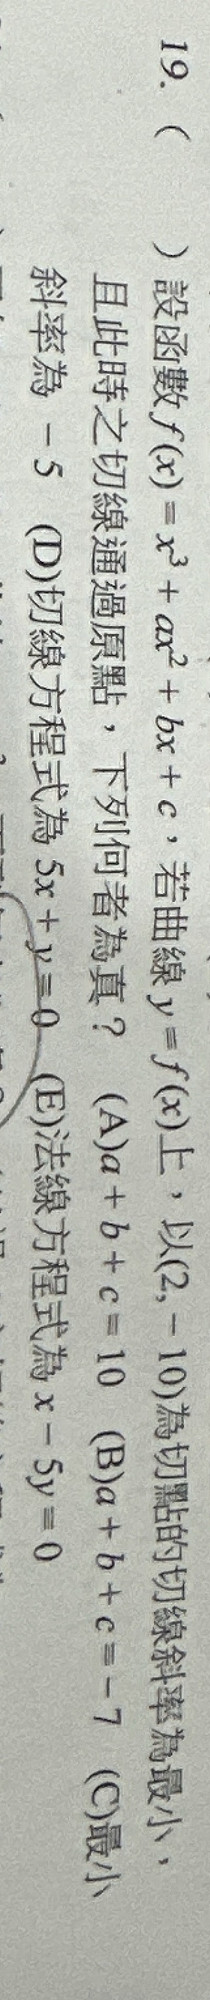 19. (　　) 設函數 f(x) = x³ + ax² + bx + c，若曲線 y = f(x)上，以(2, − 10)為切點的切線斜率為最小，
且此時之切線通過原點，下列何者為真？ (A)a + b + c = 10 (B)a + b + c = − 7 (C)最小
斜率為 − 5 (D)切線方程式為 5x + y = 0 (E)法線方程式為 x − 5y = 0